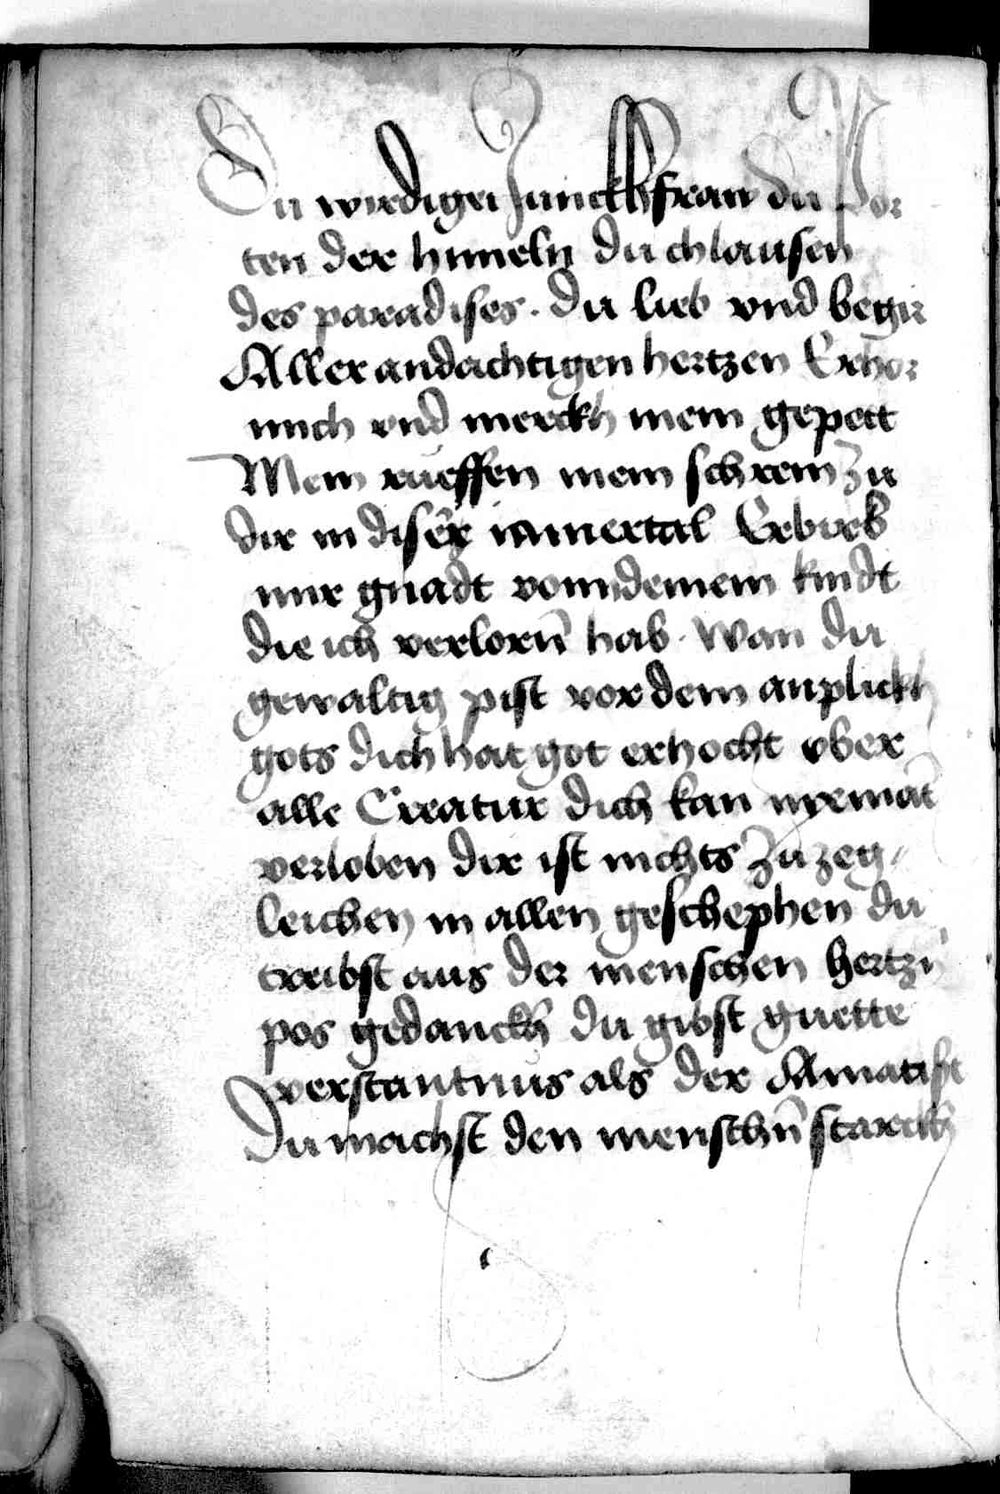 Du wirdigei Junckhfraw du Por
ten der himeln du chlausen
des paradises. du lieb vnd begir
Aller andachtigen hertzen Erhor
mich vnd merckh mein gepett
Mein rueffen mein schrein zu
dir in diser iamertal Erbirb
mir gnadt vonn deinem kindt
die ich verlorn̄ hab. Wan du
gewaltig pist vor dem anplickh
gots dich hat got erhocht vber
alle Creatur dich kan nyemāt
verloben dir ist nichts zuzeg/
leichen in allen geschephen du
treibst aus der menschen hertzn̄
pos gedanckh du gibst guette
verstantnus als der Amatist
Du machst den menschn̄ starckh